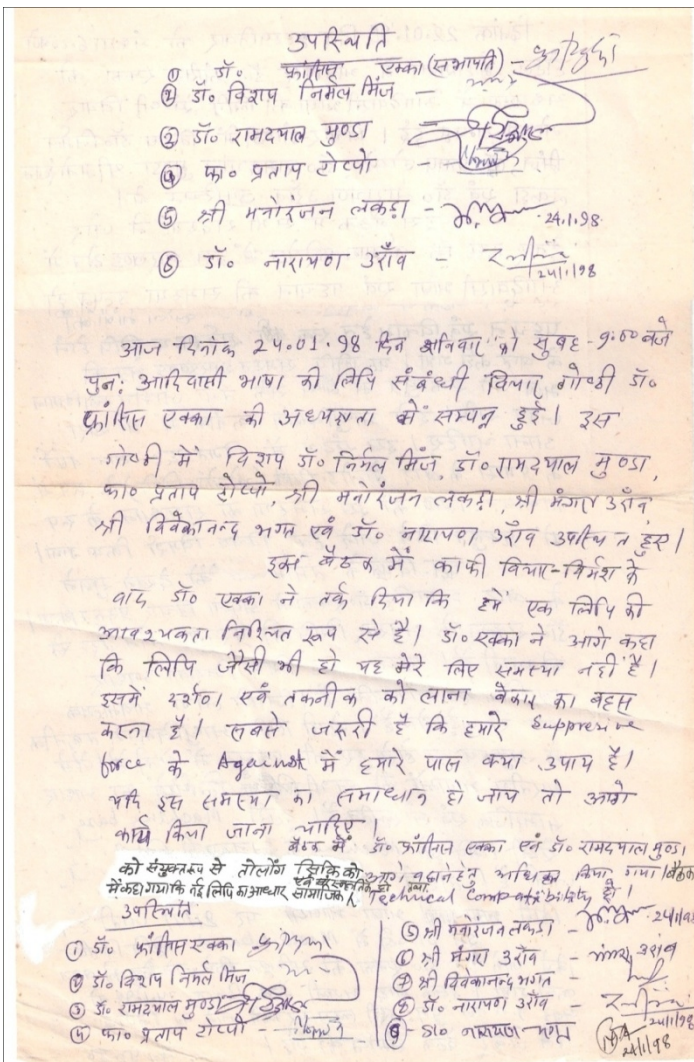 उपस्थिति
① डॉ॰ फ्रांसिस एक्का (सभापति) –
② डॉ॰ विशप निर्मल मिंज –
③ डॉ॰ रामदयाल मुण्डा
④ फा॰ प्रताप टोप्पो
⑤ श्री मनोरंजन लकड़ा – 24.1.98
⑥ डॉ॰ नारायण उराँव – 24/1/98
आज दिनांक 24.01.98 दिन शनिवार को सुबह 9:00 बजे
पुनः आदिवासी भाषा की लिपि संबंधी विचार गोष्ठी डॉ॰
फ्रांसिस एक्का की अध्यक्षता में सम्पन्न हुई। इस
गोष्ठी में विशप डॉ॰ निर्मल मिंज, डॉ॰ रामदयाल मुण्डा,
फा॰ प्रताप टोप्पो, श्री मनोरंजन लकड़ा, श्री मंगरा उराँव,
श्री विवेकानन्द भगत एवं डॉ॰ नारायण उराँव उपस्थित हुए।
इस बैठक में काफी विचार-विमर्श के
वाद डॉ॰ एक्का ने तर्क दिया कि हमें एक लिपि की
आवश्यकता निश्चित रूप से है। डॉ॰ एक्का ने आगे कहा
कि लिपि जैसी भी हो यह मेरे लिए समस्या नहीं है।
इसमें दर्शन एवं तकनीक को लाना बेकार का बहस
करना है। सबसे जरूरी है कि हमारे Suppressive
force के Against में हमारे पास क्या उपाय है।
यदि इस समस्या का समाधान हो जाय तो आगे
कार्य किया जाना चाहिए।
बैठक में डॉ॰ फ्रांसिस एक्का एवं डॉ॰ रामदयाल मुण्डा
को संयुक्त रूप से तोलोंग सिकि को आगे बढ़ाने हेतु अधिकृत किया गया। बैठक
में कहा गया कि नई लिपि का आधार सामाजिक एवं सांस्कृतिक हो तथा Technical Compatibility हो।
उपस्थिति
① डॉ॰ फ्रांसिस एक्का
② डॉ॰ विशप निर्मल मिंज
③ डॉ॰ रामदयाल मुण्डा
④ फा॰ प्रताप टोप्पो –
⑤ श्री मनोरंजन लकड़ा – 24/1/98
⑥ श्री मंगरा उराँव – मंगरा उरांव
⑦ श्री विवेकानन्द भगत –
⑧ डॉ॰ नारायण उराँव – 24/1/98
⑨ डा॰ नारायण भगत 24/1/98